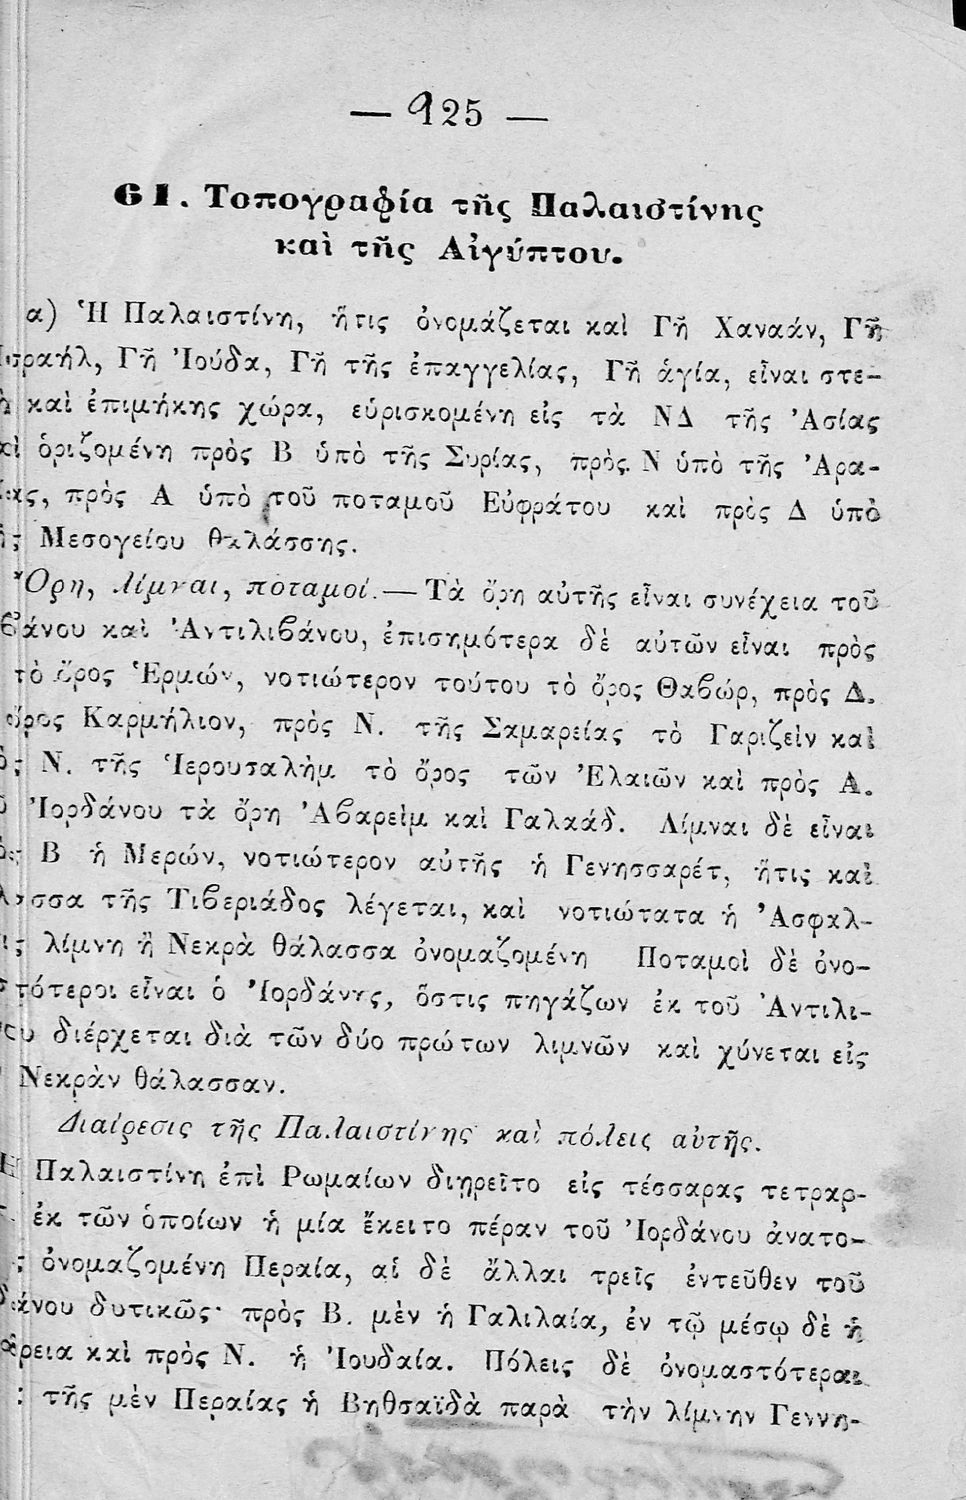 — 125 —
61. Τοπογραφία τῆς Παλαιστίνης
καὶ τῆς Αἰγύπτου.
α) Ἡ Παλαιστίνη, ἥτις ὀνομάζεται καὶ Γῆ Χαναάν, Γῆ
Ἰσραήλ, Γῆ Ἰούδα, Γῆ τῆς ἐπαγγελίας, Γῆ ἁγία, εἶναι στε-
ὴ καὶ ἐπιμήκης χώρα, εὑρισκομένη εἰς τὰ ΝΔ τῆς Ἀσίας
αὶ ὁριζομένη πρὸς Β ὑπὸ τῆς Συρίας, πρὸς Ν ὑπὸ τῆς Ἀρα-
ίας, πρὸς Α ὑπὸ τοῦ ποταμοῦ Εὐφράτου καὶ πρὸς Δ ὑπὸ
ῆς Μεσογείου θαλάσσης.
Ὄρη, λίμναι, ποταμοί.— Τὰ ὄρη αὐτῆς εἶναι συνέχεια τοῦ
βάνου καὶ Ἀντιλιβάνου, ἐπισημότερα δὲ αὐτῶν εἶναι πρὸς
τὸ ὄρος Ἑρμών, νοτιώτερον τούτου τὸ ὄρος Θαβώρ, πρὸς Δ.
ὄρος Καρμήλιον, πρὸς Ν. τῆς Σαμαρείας τὸ Γαριζεὶν καὶ
ὸς Ν. τῆς Ἱερουσαλὴμ τὸ ὄρος τῶν Ἐλαιῶν καὶ πρὸς Α.
ῦ Ἰορδάνου τὰ ὄρη Ἀβαρεὶμ καὶ Γαλαάδ. Λίμναι δὲ εἶναι
ὸς Β ἡ Μερών, νοτιώτερον αὐτῆς ἡ Γενησσαρέτ, ἥτις καὶ
λασσα τῆς Τιβεριάδος λέγεται, καὶ νοτιώτατα ἡ Ἀσφαλ-
ις λίμνη ἢ Νεκρὰ θάλασσα ὀνομαζομένη Ποταμοὶ δὲ ὀνο-
στότεροι εἶναι ὁ Ἰορδάνης, ὅστις πηγάζων ἐκ τοῦ Ἀντιλι-
ου διέρχεται διὰ τῶν δύο πρώτων λιμνῶν καὶ χύνεται εἰς
Νεκρὰν θάλασσαν.
Διαίρεσις τῆς Παλαιστίνης καὶ πόλεις αὐτῆς.
Ἡ Παλαιστίνη ἐπὶ Ρωμαίων διῃρεῖτο εἰς τέσσαρας τετραρ-
ἐκ τῶν ὁποίων ἡ μία ἔκειτο πέραν τοῦ Ἰορδάνου ἀνατο-
ς ὀνομαζομένη Περαία, αἱ δὲ ἄλλαι τρεῖς ἐντεῦθεν τοῦ
δάνου δυτικῶς· πρὸς Β. μὲν ἡ Γαλιλαία, ἐν τῷ μέσῳ δὲ ἡ
άρεια καὶ πρὸς Ν. ἡ Ἰουδαία. Πόλεις δὲ ὀνομαστότεραι
: τῆς μὲν Περαίας ἡ Βηθσαϊδὰ παρὰ τὴν λίμνην Γεννη-